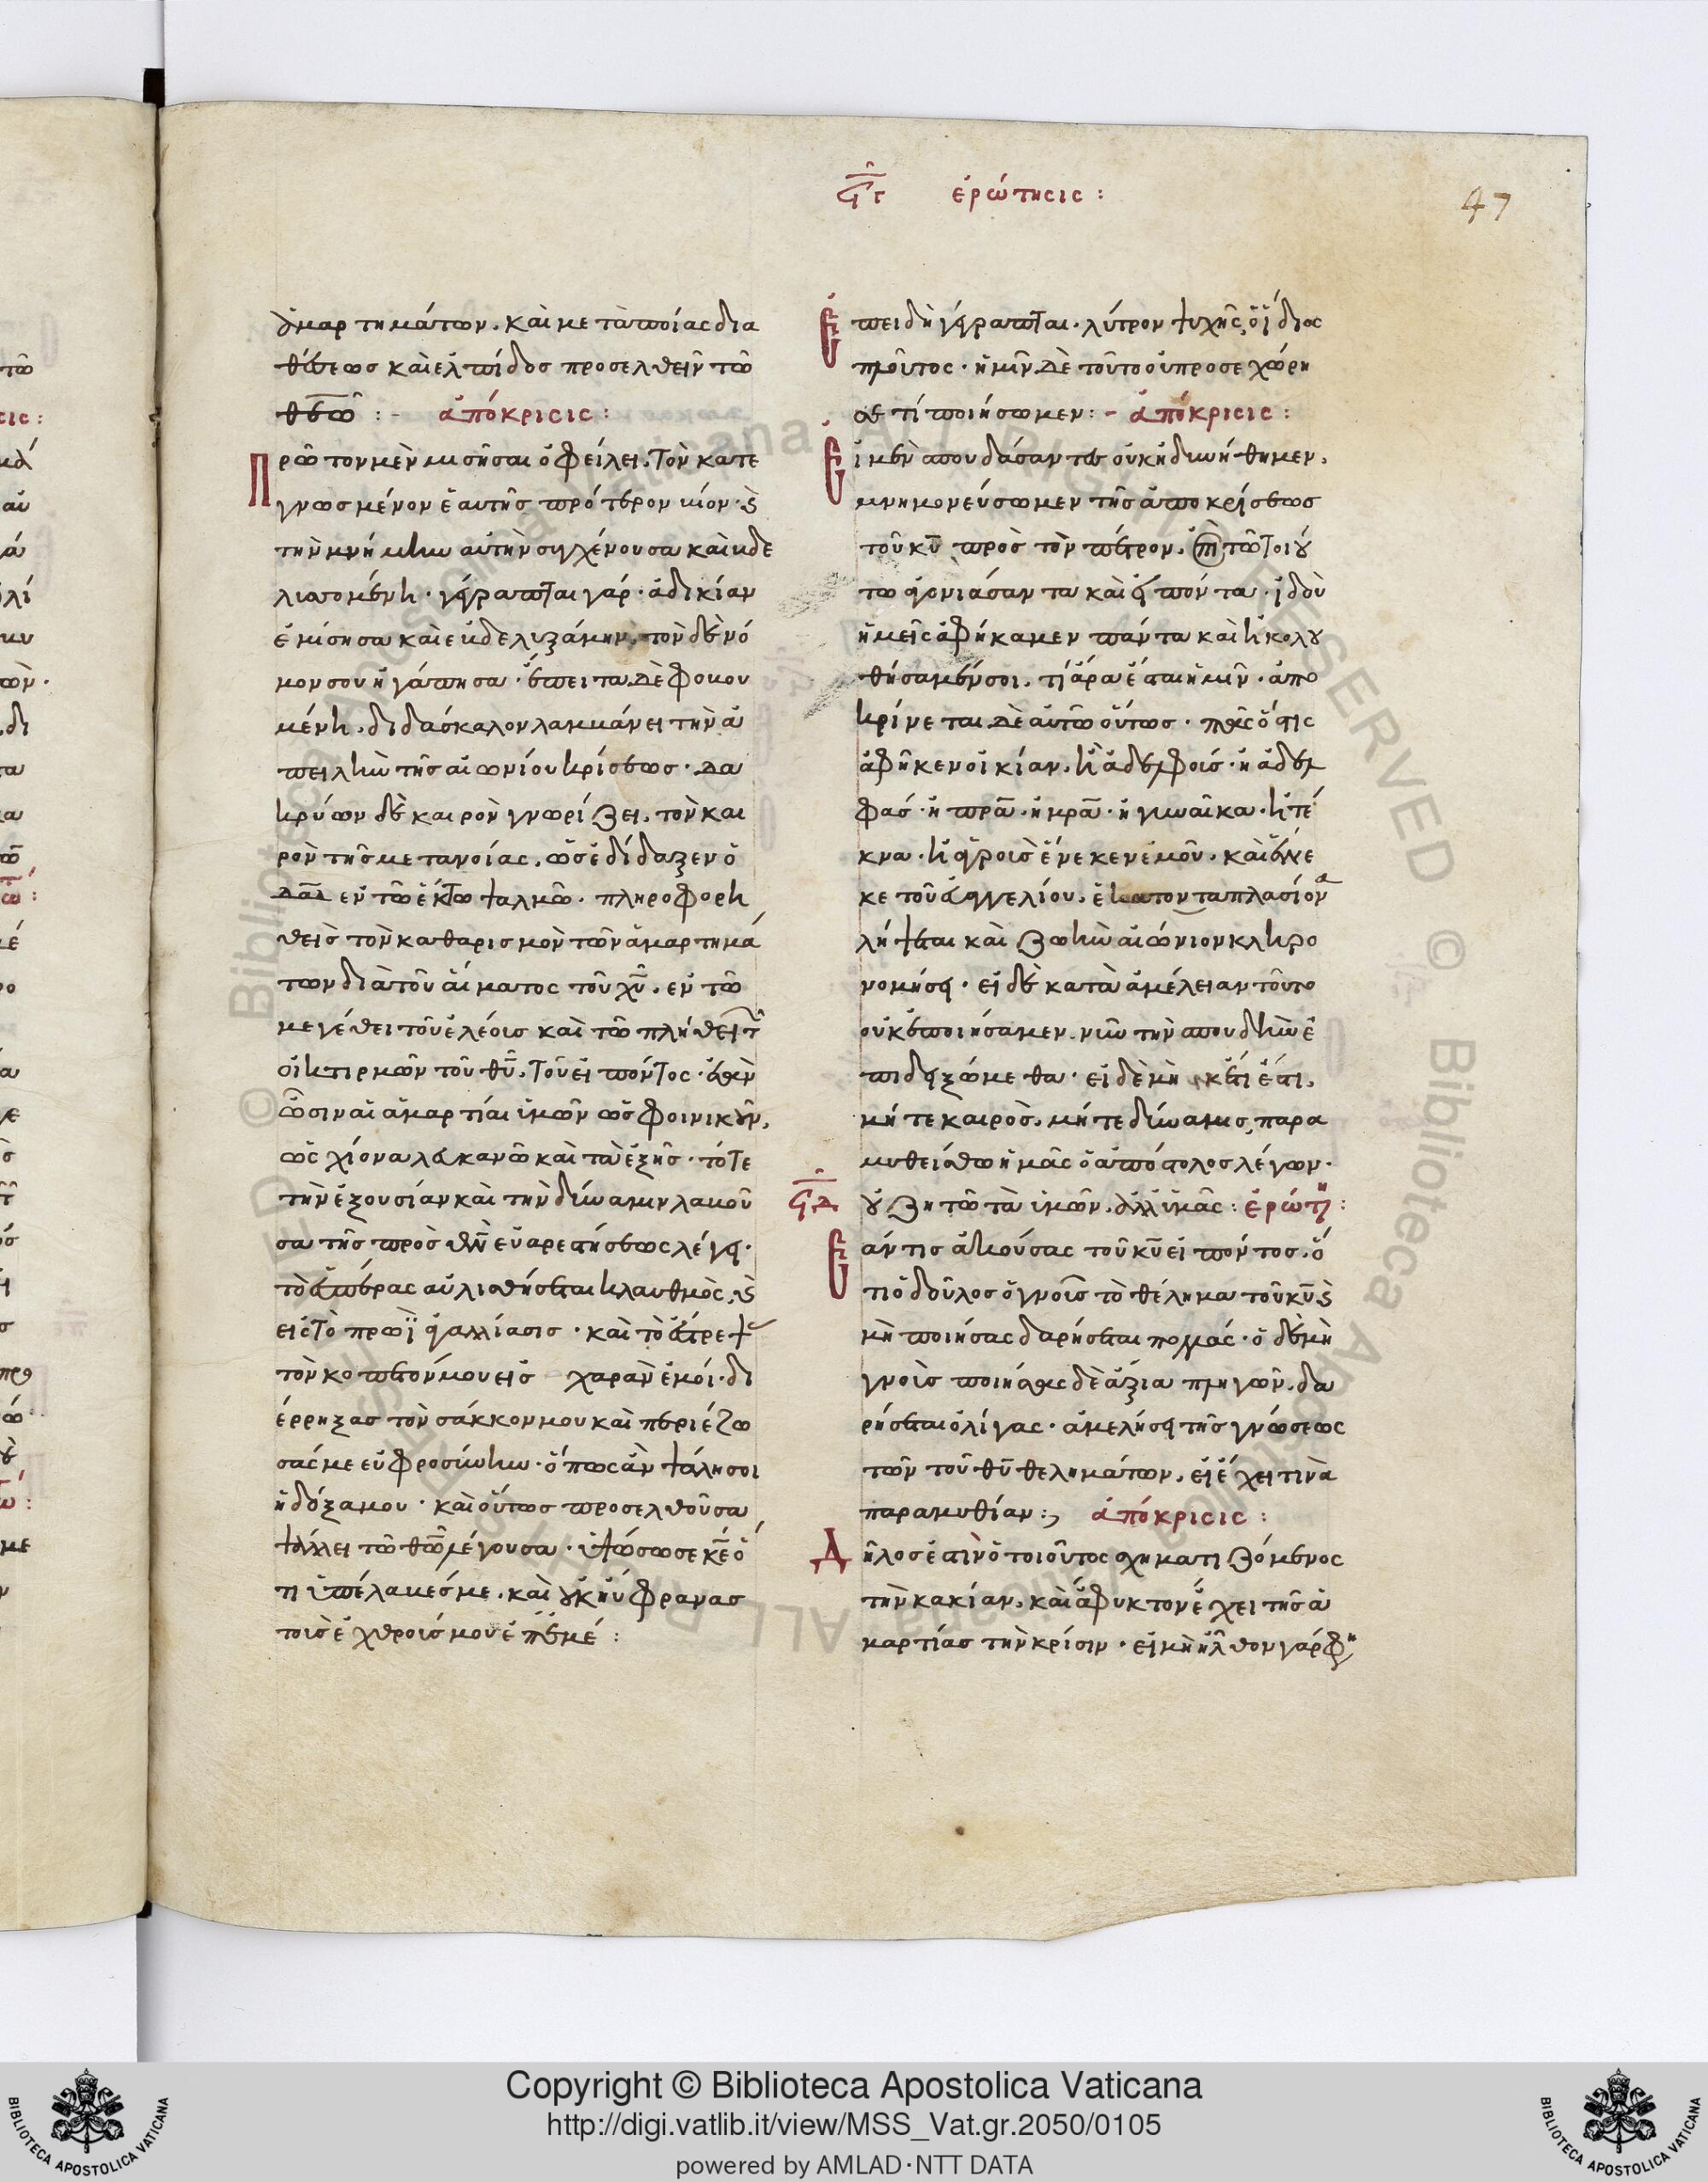 ϟγ ἐρώτησις :
47
ἁμαρτημάτων. καὶ μετὰ ποίας δια
θέσεως καὶ ἐλπίδος προσελθεῖν τῶ
θεῶ : - ἀπόκρισις :
Πρῶτον μὲν μισῆσαι ὀφείλει. τὸν κατε
γνωσμένον ἑαυτῆς πρότερον βίον · ϗ
τὴν μνήμην αὐτὴν συγχένουσα καὶ βδε
λυσσομένη · γέγραπται γάρ · ἀδικίαν
ἐμίσησα καὶ ἐβδελυξάμην, τὸν δὲ νό
μον σου ἠγάπησα · ἔπειτα δὲ φοβου
μένη. διδάσκαλον λαμβάνει τὴν ἀ
πειλὴν τῆς αἰωνίου κρίσεως · δα
κρύων δὲ καιρὸν γνωρίζει. τὸν και
ρὸν τῆς μετανοίας. ὡς ἐδίδαξεν ὁ
δαδ ἐν τῶ ἕκτω ψαλμῶ. πληροφορη
θεὶς τὸν καθαρισμὸν τῶν ἁμαρτημά
των διὰ τοῦ αἵματος τοῦ χυ. ἐν τῶ
μεγέθει τοῦ ἐλέους καὶ τῶ πλήθει τ
οἰκτιρμῶν τοῦ θυ. τοῦ εἰπόντος · ἐὰν
ὦσιν αἱ ἁμαρτίαι ὑμῶν ὡς φοινικοῦν,
ὡς χιόνα λευκανῶ καὶ τὰ ἑξῆς · τότε
τὴν ἐξουσίαν καὶ τὴν δύναμιν λαβοῦ
σα τῆς πρὸς θν εὐαρεστήσεως λέγει ·
τὸ ἑσπέρας αὐλισθήσεται κλαυθμὸς, ϗ
εἰς τὸ πρωῒ ἀγαλλίασις · καὶ τὸ ἔστρεψ
τὸν κοπετόν μου εἰς χαρὰν ἐμοί · δι
έρρηξας τὸν σάκκον μου καὶ περιέζω
σάς με εὐφροσύνην · ὅπως ἂν ψάλη σοι
ἡ δόξα μου · καὶ οὕτως προσελθοῦσα
ψάλλει τῶ θω λέγουσα · ὑψώσω σε κε ὅ
τι ὑπέλαβές με. καὶ οὐκ ηὔφρανας
τοὺς ἐχθρούς μου ἐπ' ἐμέ :
Ἐπειδὴ γέγραπται · λύτρον ψυχῆς, ὁ ἴδιος
πλοῦτος · ἡμῖν δὲ τοῦτο οὐ προσεχώρη
σε τί ποιήσωμεν : - ἀπόκρισις :
Εἰ μὲν σπουδάσαντες οὐκ ἠδυνήθημεν.
μνημονεύσωμεν τῆς ἀποκρίσεως
τοῦ κυ πρὸς τὸν πέτρον. ἐπὶ τῶ τοιού
τω ἀγωνιάσαντα καὶ εἰπόντα · ἰδοὺ
ἡμεῖς ἀφήκαμεν πάντα καὶ ἠκολου
θήσαμέν σοι. τί ἄρα ἔσται ἡμῖν · ἀπο
κρίνεται δὲ αὐτῶ οὕτως · πᾶς ὅστις
ἀφῆκεν οἰκίαν. ἢ ἀδελφοὺς · ἢ ἀδελ
φάς · ἢ πρα · ἢ μρα · ἢ γυναῖκα · ἢ τέ
κνα · ἢ ἀγροὺς ἕνεκεν ἐμοῦ. καὶ ἕνε
κε τοῦ εὐαγγελίου. ἑκατονταπλασίονα
λήψεται καὶ ζωὴν αἰώνιον κληρο
νομήσει · εἰ δὲ κατὰ ἀμέλειαν τοῦτο
οὐκ ἐποιήσαμεν. νῦν τὴν σπουδὴν ἐ
πιδειξώμεθα · εἰ δὲ μὴ ἔστι,
μήτε καιρὸς. μήτε δύναμις, παρα
μυθείσθω ἡμᾶς ὁ ἀπόστολος λέγων ·
ϟδ οὐ ζητῶ τὰ ὑμῶν. ἀλλ' ὑμᾶς : ἐρώτη :
Ἐάν τις ἀκούσας τοῦ κυ εἰπόντος. ὅ
τι ὁ δοῦλος ὁ γνοὺς τὸ θέλημα τοῦ κυ ϗ
μὴ ποιήσας δαρήσεται πολλάς · ὁ δὲ μὴ
γνοὺς ποιήσας δὲ ἄξια πληγῶν. δα
ρήσεται ὀλίγας · ἀμελήσει τῆς γνώσεως
τῶν τοῦ θυ θελημάτων. εἰ ἔχει τινὰ
παραμυθίαν :, ἀπόκρισις :
Δῆλος ἐστὶν ὁ τοιοῦτος σχηματιζόμενος
τὴν κακίαν. καὶ ἄφυκτον ἔχει τῆς ἁ
μαρτίας τὴν κρίσιν · εἰ μὴ ἦλθον γάρ φη
Copyright © Biblioteca Apostolica Vaticana
http://digi.vatlib.it/view/MSS_Vat.gr.2050/0105
powered by AMLAD·NTT DATA
BIBLIOTECA APOSTOLICA VATICANA
BIBLIOTECA APOSTOLICA VATICANA